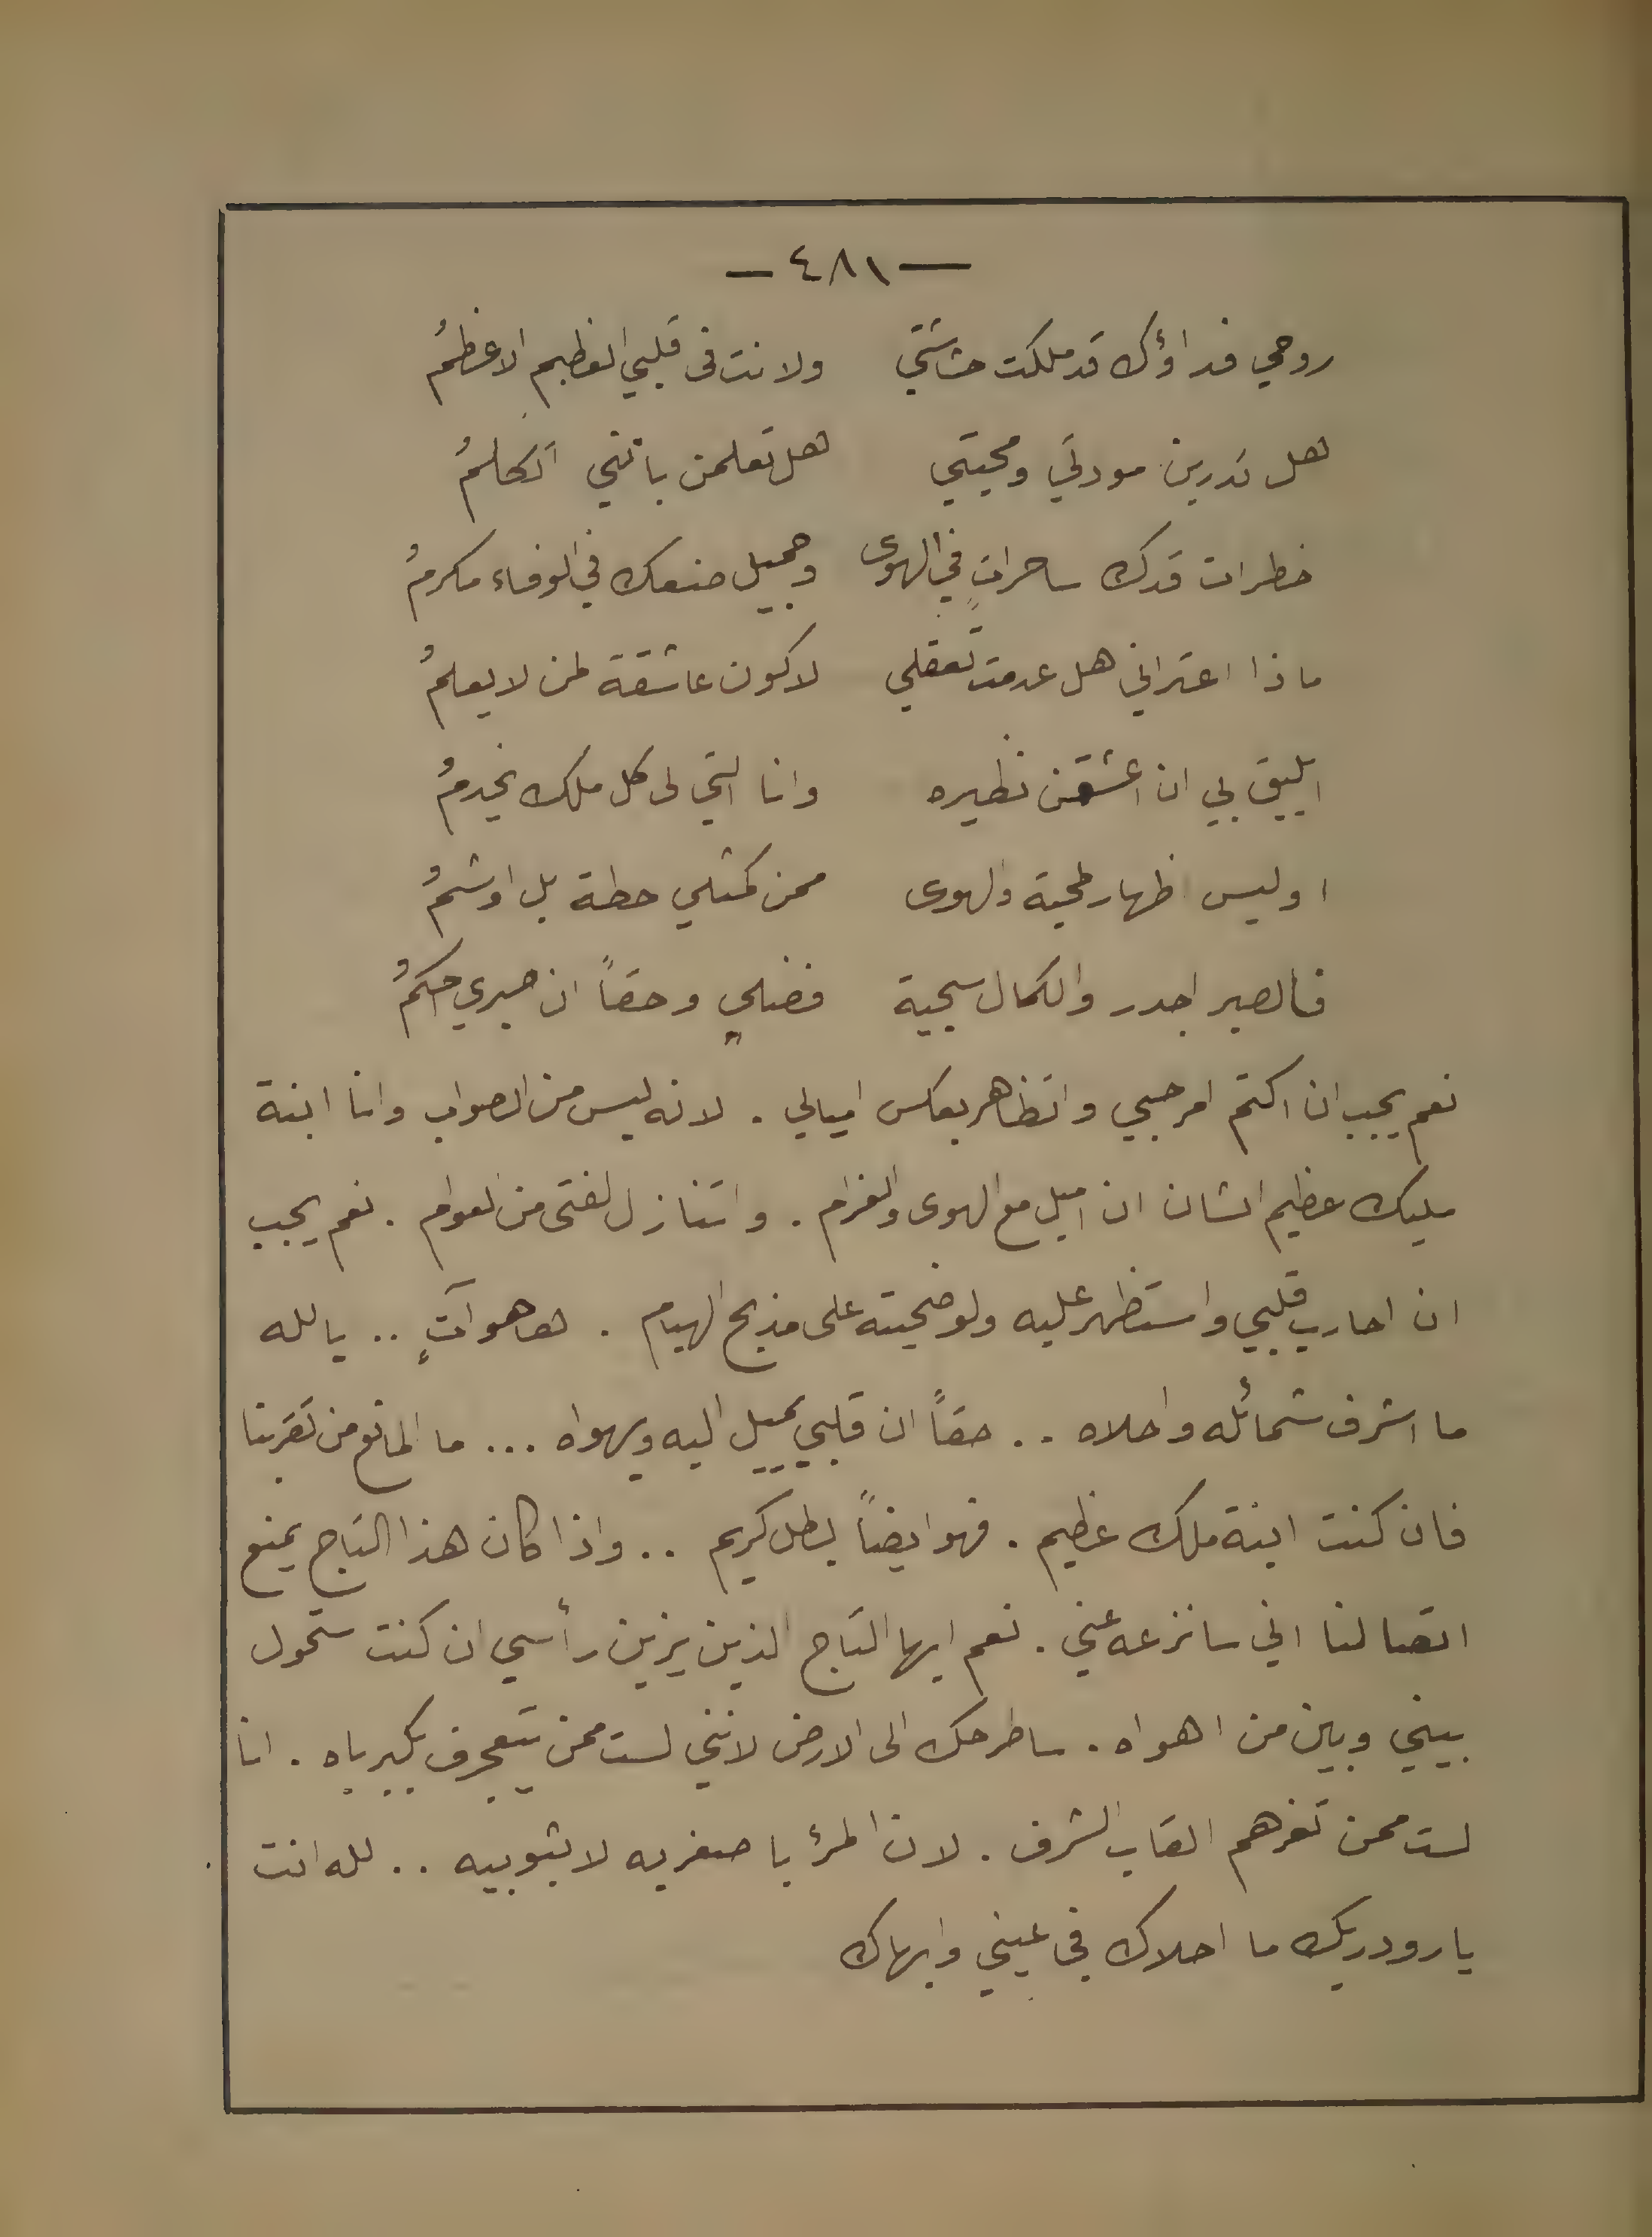 — ٤٨١ —
روحي فداؤك قد ملكت حشاشتي ولانت في قلبي العظيم الاعظمُ
هل تدرين مودتي ومحبتي هل تعلمن بانني اتكلمُ
خطرات قدك ساحراتٍ في الهوى وجميل صنعك في الوفاء مكرمُ
ماذا اعتراني هل عدمت تعقلي لاكون عاشقة لمن لا يعلمُ
ايليق بي ان اعشقن نظيره وانا التي لى كل ملك يخدمُ
اوليس اظهار المحبة والهوى ممن كمثلي حطة بل اوشمُ
فالصبر اجدر والكمال سجية فضلي وحقاً ان صبري احكمُ
نعم يجب ان اكتم امر حبي واتظاهر بعكس اميالي . لانه ليس من الصواب وانا ابنة
مليك عظيم الشان ان اميل مع الهوى والغرام . واتنازل لفتى من العوام . نعم يجب
ان احارب قلبي واستظهر عليه ولو ضحيته على مذبح الهيام . ها هو آتٍ .. يا لله
ما اشرف شمائله واحلاه .. حقاً ان قلبي يميل اليه ويهواه ... ما المانع من تقربنا
فان كنت ابنة ملك عظيم . فهو ايضاً بطل كريم .. واذا كان هذا التاج يمنع
اتصالنا اني سانزعه عني . نعم ايها التاج الذين يزين رأسي ان كنت ستحول
بيني وبين من اهواه . ساطرحك الى الارض لانني لست ممن يتعجرف بكبرياه . انا
لست ممن تغرهم القاب الشرف . لان المرء باصغريه لا بثوبيه .. لله انت
يا رودريك ما احلاك في عيني وابهاك